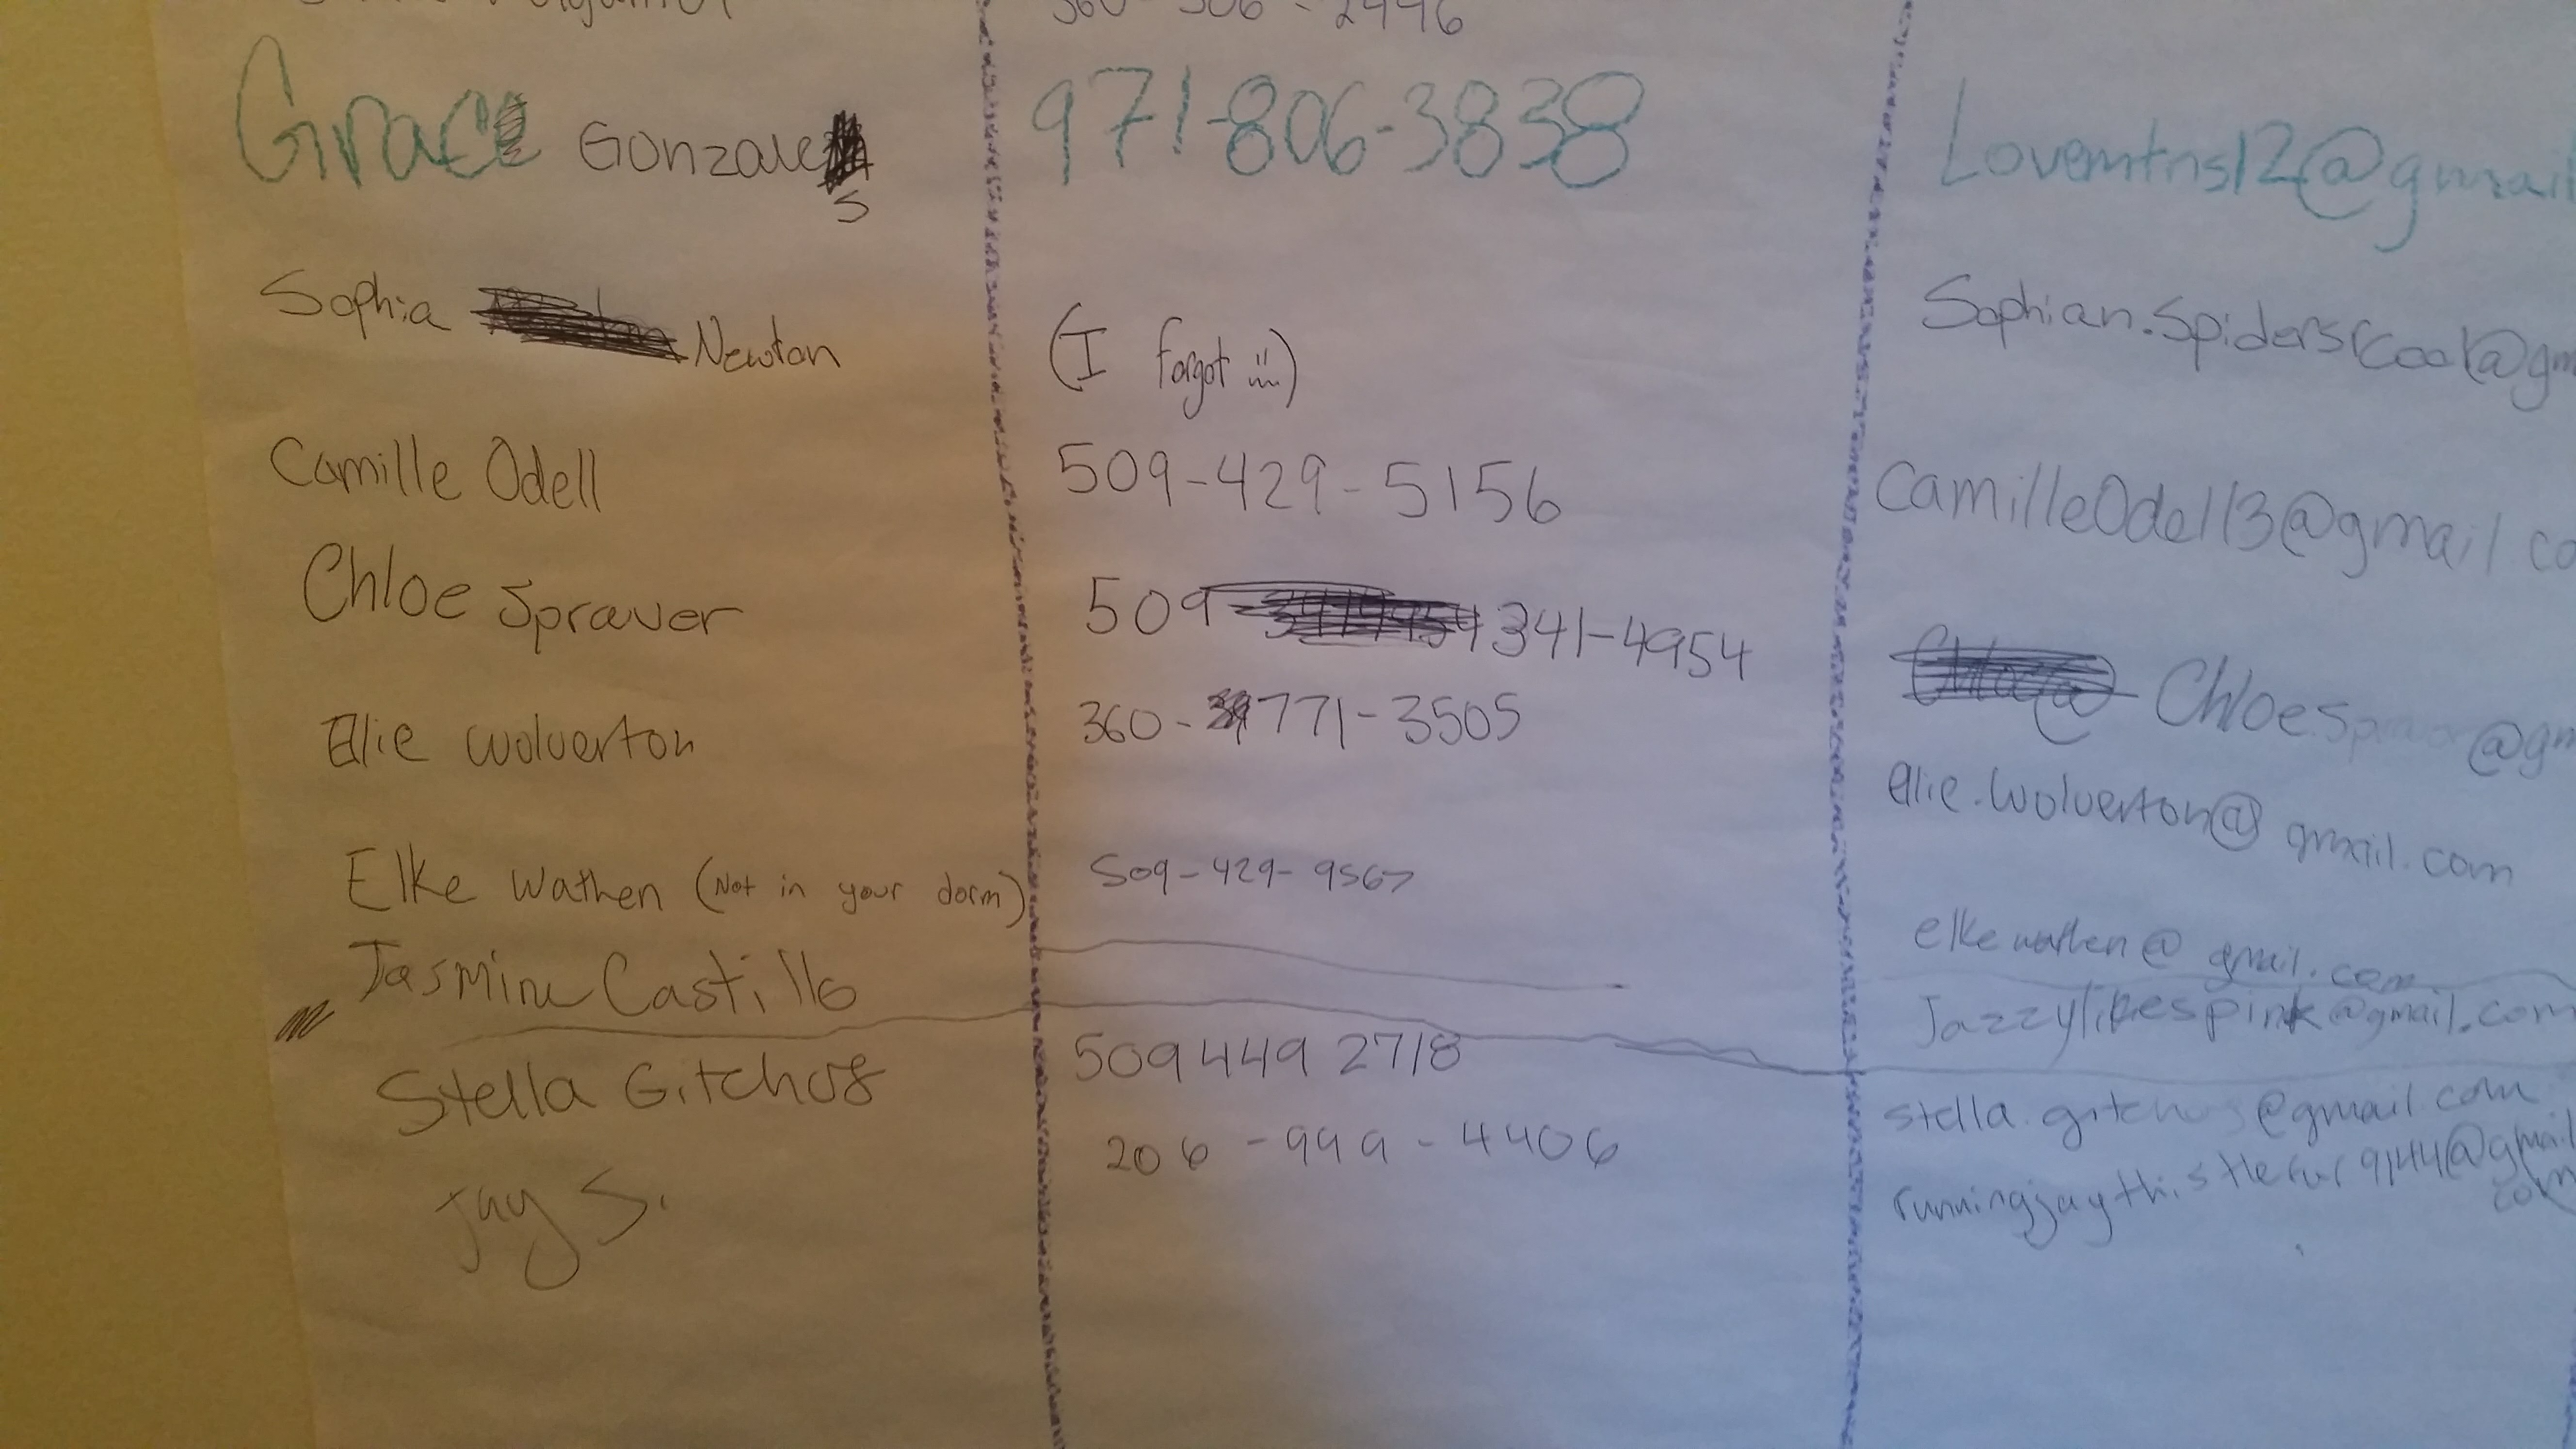 360-306-2446
Grace Gonzales 971-806-3838 Lovemtns12@gmail
Sophia Newton (I forgot !!!) Sophian.Spidersrcool@gm
Camille Odell 509-429-5156 CamilleOdell13@gmail.co
Chloe Sprauer 509 341-4954 Chloe @gm
Ellie Wolverton 360-771-3505 ellie.wolverton@gmail.com
Elke Wathen (Not in your dorm) 509-429-9567 elkewathen@gmail.com
Jasmine Castillo Jazzylikespink@gmail.com
Stella Gitchos 509 449 2718 stella.gitchos@gmail.com
Jay S. 206-999-4406 @gmail
com